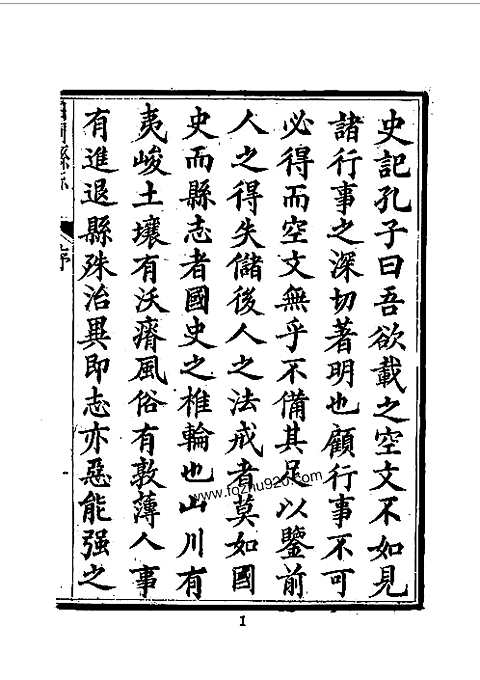 史記孔子曰吾欲載之空文不如見
諸行事之深切著明也顧行事不可
必得而空文無乎不備其足以鑒前
人之得失儲後人之法戒者莫如國
史而縣志者國史之椎輪也山川有
夷峻土壤有沃瘠風俗有敦薄人事
有進退縣殊治異即志亦惡能强之
序
www.fozhu920.com
1